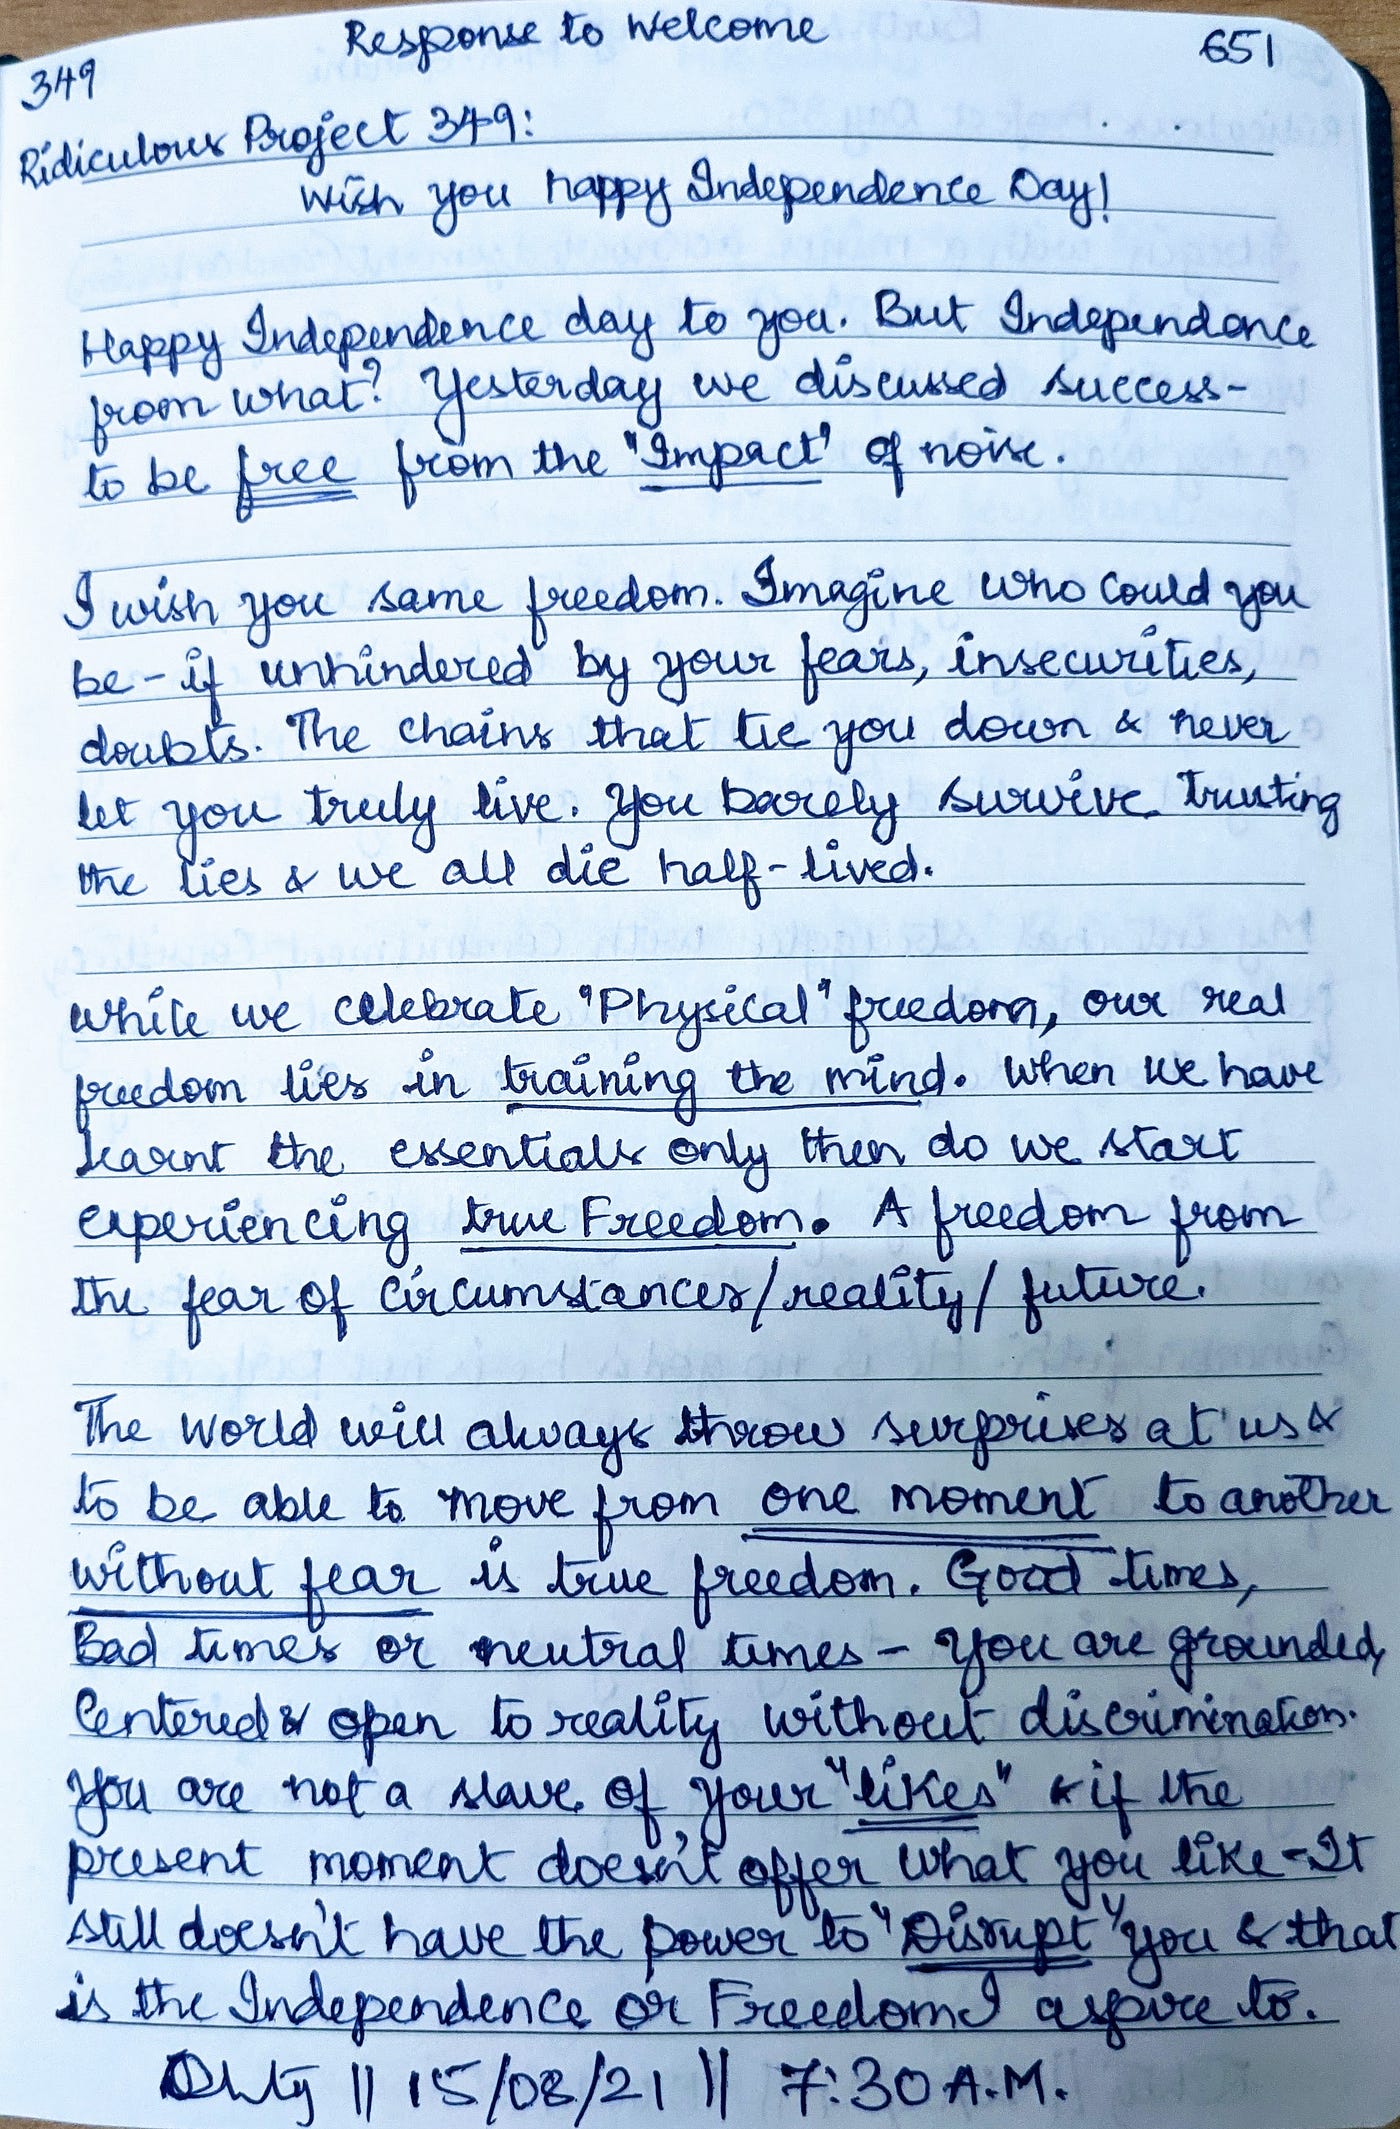 Response to Welcome
349
651
Ridiculous Project 349:
Wish you Happy Independence Day!
Happy Independence day to you. But Independance
from what? Yesterday we discussed success-
to be free from the "Impact" of noise.
I wish you same freedom. Imagine who could you
be - if unhindered by your fears, insecurities,
doubts. The chains that tie you down & never
let you truly live. You barely survive trusting
the lies & we all die half-lived.
While we celebrate "Physical" freedom, our real
freedom lies in training the mind. When we have
learnt the essentials only then do we start
experiencing true Freedom. A freedom from
the fear of circumstances/reality/future.
The world will always throw surprises at us &
to be able to move from one moment to another
without fear is true freedom. Good times,
Bad times or neutral times - you are grounded,
Centered & open to reality without discrimination.
You are not a slave of your "likes" & if the
present moment doesn't offer what you like - It
still doesn't have the power to "Disrupt" you & that
is the Independence or Freedom I aspire to.
|| 15/08/21 || 7:30 A.M.